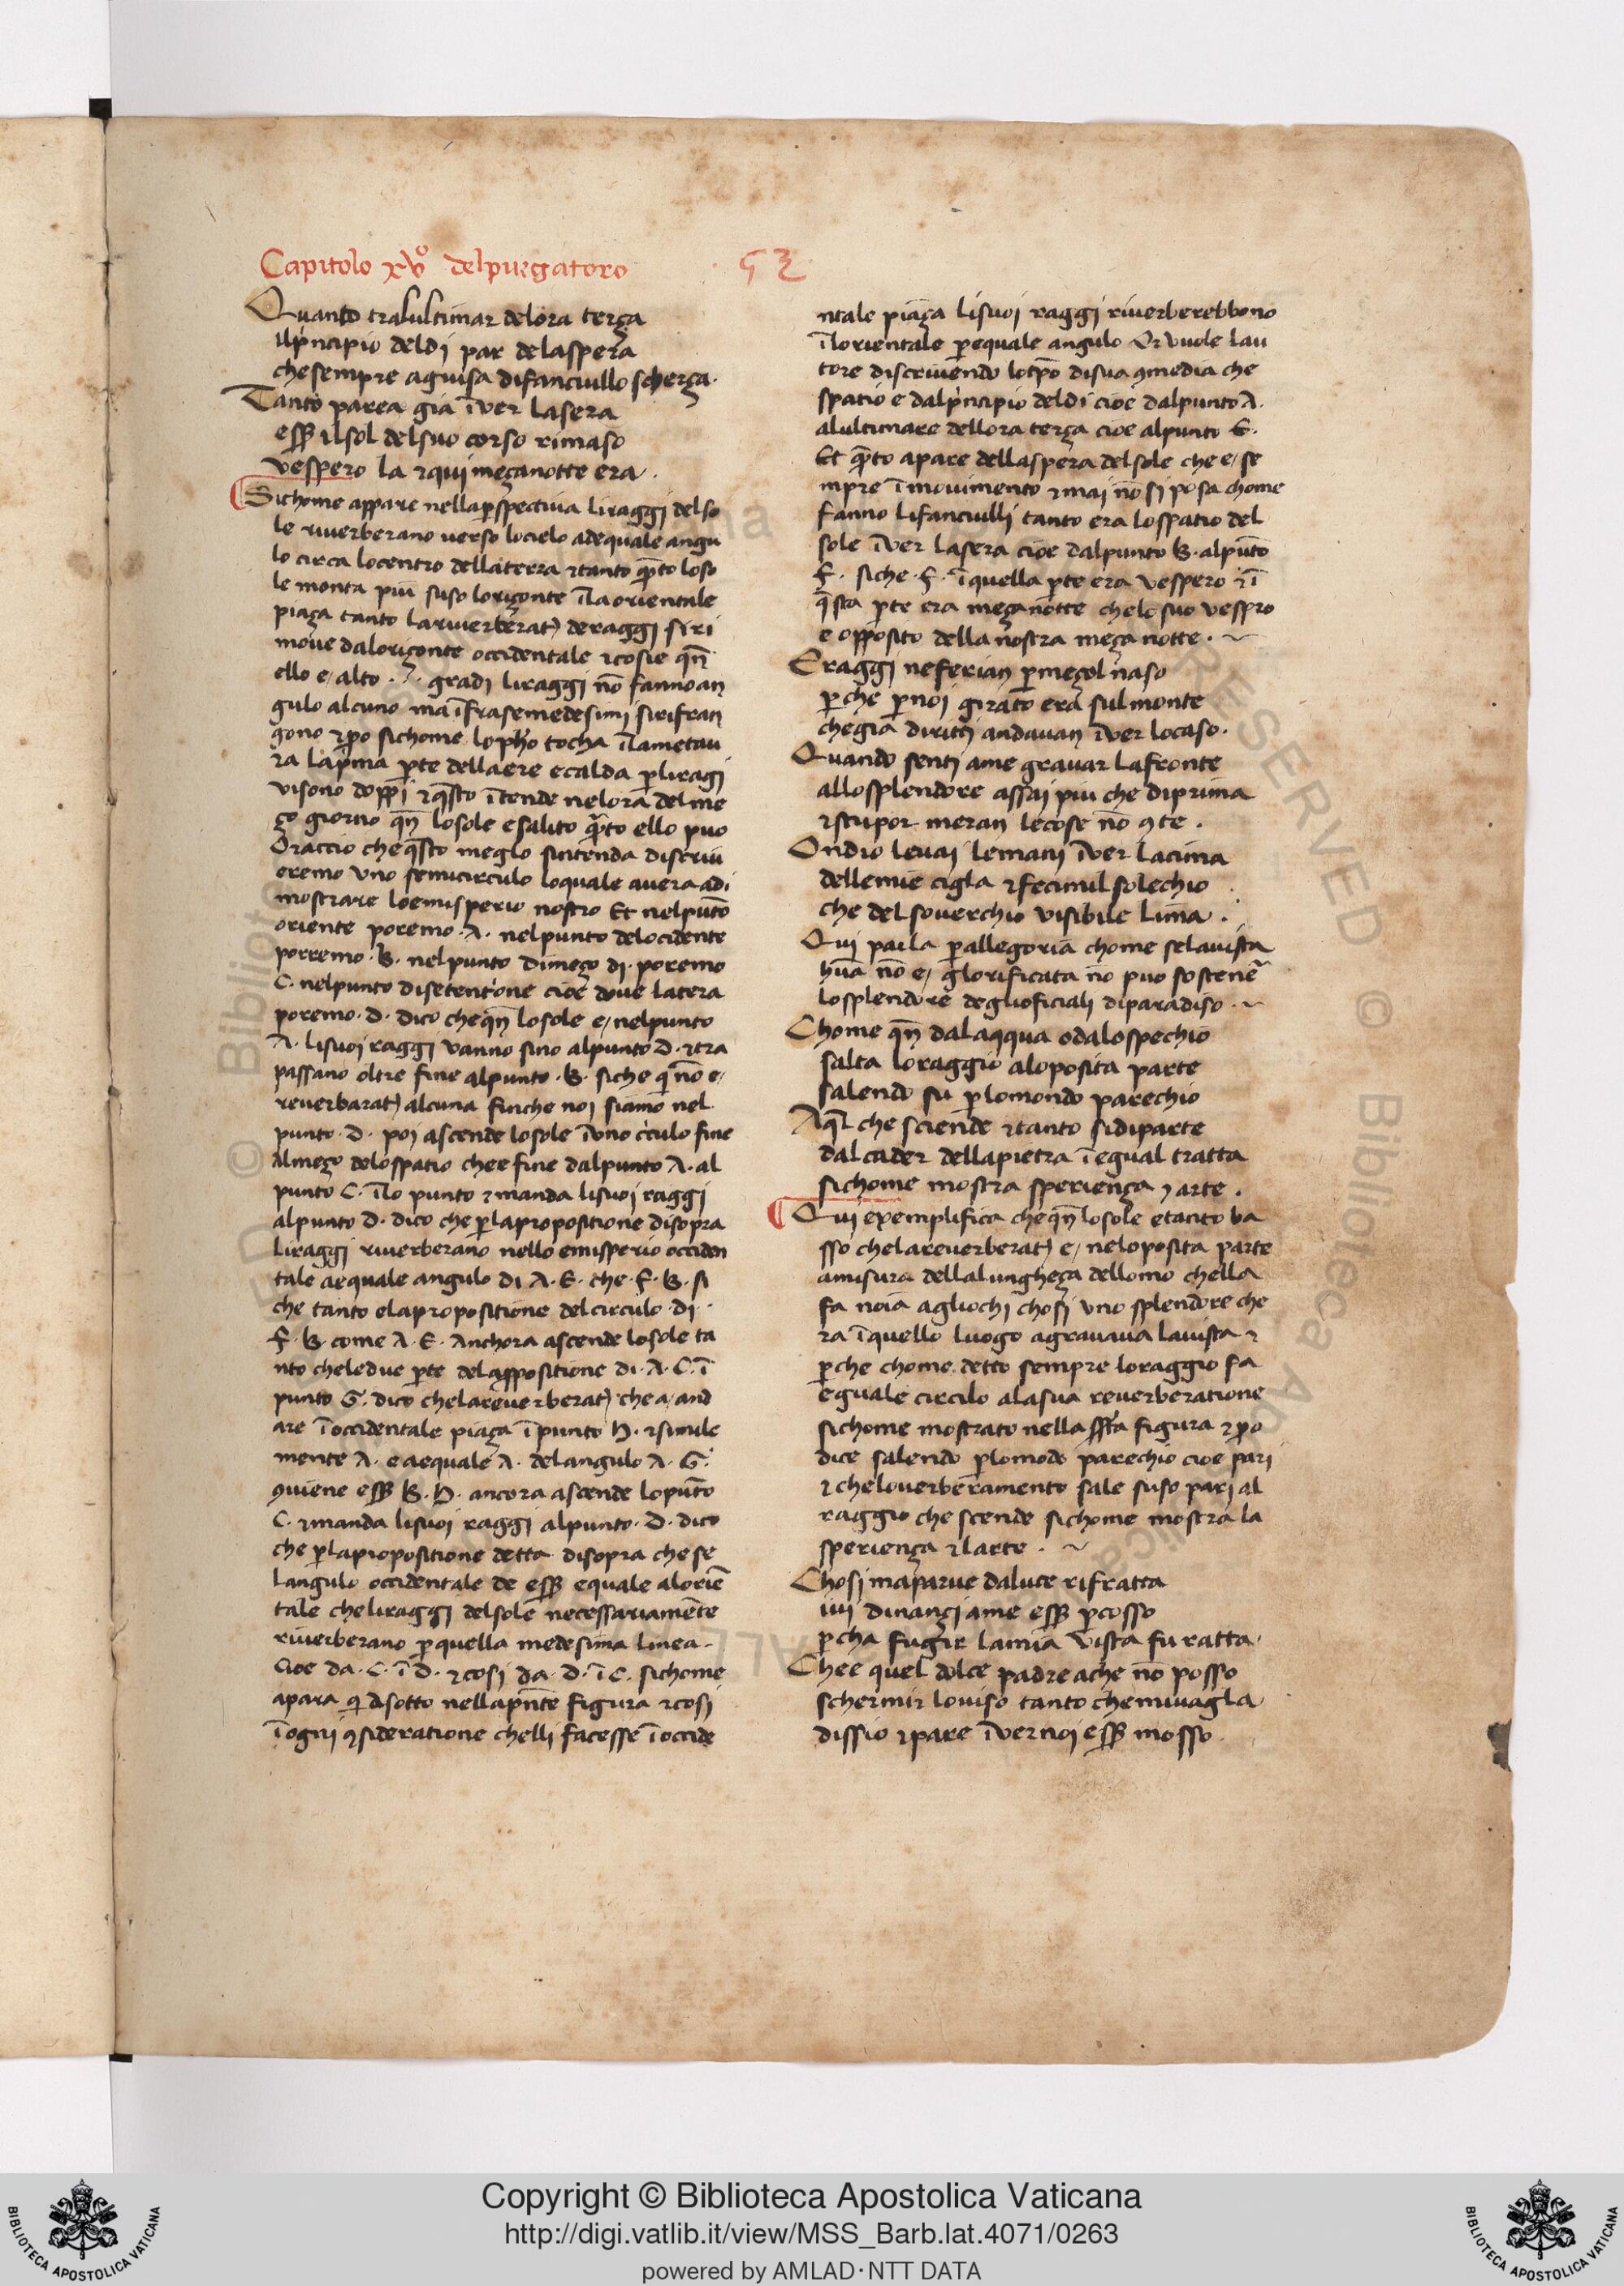 Capitolo xv° delpurgatoro
53
Quanto tralultimar delora terça
ilp̄ncipio deldi par delaspera
chesempre aguisa difanciullo scherça.
Tanto parea gia īver lasera
esser̄ ilsol delsuo corso rimaso
vespero la ⁊qui meçanotte era.
Sichome appare nellap̱spectiva liraggi delso
le riverberano verso locielo adequale angu
lo circa locentro dellaterra ⁊tanto qͣto loso
le monta piu suso loriçonte īlaorientale
piaça tanto lariverberatꝫ deraggi siri
move daloriçonte occidentale ⁊cosie qn̄
ello e/ alto gradi liraggi nō fannoan
gulo alcuno ma īfrasemedesimi sirifran
gono ⁊po sichome lopho tocha īlametau
ra lap̄ma p̱te dellaere ecalda p̱liragi
visono doppi ⁊qs̄to ītende nelora delme
ço giorno qn̄ losole esalito qͣto ello puo
Oraccio cheqs̄to meglo sintenda discriu
eremo uno semicirculo loquale avera adi
mostrare loemisperio nostro Et nelpūto
oriente poremo .A. nelpunto delocidente
porremo .B. nelpunto dimeço di. poremo
C. nelpunto disetentrione cioe dove latera
poremo .D. dico cheqn̄ losole e/ nelpunto
A. lisuoi raggi vanno sino alpunto D. ⁊tra
passano oltre fine alpunto .B. siche qi nō e/
reverbaratꝫ alcuna finche noi siamo nel
punto .D. poi ascende losole īuno cīculo fine
almeço delospatio chee fine dalpunto A. al
punto C. īlo punto ⁊manda lisuoi raggi
alpunto D. dico che p̱lapropositione disopra
liraggi riverberano nello emisperio occiden
tale aequale angulo di A.E. che .F.B. si
che tanto elapropositione delcirculo .di.
F.B. come A.E. Anchora ascende losole ta
nto cheledue p̱te delapposītione di .A.C. ī
punto G. dico chelareverberatꝫ che a/ and
are īoccidentale piaça īpunto H. ⁊simile
mente A. eaequale A. delangulo A.G.
ꝯviene esser̄ B.H. ancora ascende lopūto
C. ⁊manda lisuoi raggi alpunto .D. dico
che p̱lapropositione detta disopra che se
langulo occidentale de esser̄ equale aloriē
tale cheliraggi delsole necessariamente
riverberano p̱quella medesima linea.
Cioe da .C. ī D. ⁊cosi da .D. ī C. sichome
apara qi disotto nellap̄nte figura ⁊cosi
īogni ꝯsideratione chelli facesse īoccide
ntale piaça lisuoi raggi riverberebbono
īlorientale p̱equale angulo Or vuole lau
tore discrivendo lotp̄o disua ꝯmedia che
spatio e dalp̄ncipio deldi cioe dalpunto A.
alultimare dellora terça cioe alpunto E.
Et qͣto apare dellaspera delsole che e/ se
mpre īmovimento ⁊mai nō si posa chome
fanno lifanciulli tanto era lospatio del
sole īver lasera cioe dalpunto B. alpūto
F. siche .F. īquella p̱te era vespero ⁊ī
qs̄ta p̱te era meçanotte chelo suo vespro
e opposito della nostra meça notte.
Eraggi neferian p̱meçol naso
p̱che p̱noi girato era sulmonte
chegia diritti andavan īver locaso.
Quando senti ame gravar lafronte
allosplendore assai piu che diprima
⁊stupor meran lecose nō ꝯte.
Ondio levai lemani īver lacima
dellemie cigla ⁊fecimil solechio
che del soverchio visibile lima.
Qui parla p̱allegoria chome selavista
hūa nō e/ glorificata nō puo sosteneͬ
losplendore degliofficiali diparadiso.
Chome qn̄ dalaqqua odalospechio
salta loraggio aloposita parte
salendo su p̱lomondo parechio
Aql̄ che sciende ⁊tanto sidiparte
dalcader dellapietra īegual tratta
sichome mostra sperienҫa ⁊ arte.
Qui exemplifica cheqn̄ losole etanto ba
sso chelareverberatꝫ e/ neloposita parte
amisura dellalungheça dellomo chella
fa noia agliochi chosi uno splendore che
ra īquello luogo agravava lavista ⁊
p̱che chome detto sempre loraggio fa
eguale circulo alasua reverberatione
sichome mostrato nella sp̄ra figura ⁊po
dice salendo p̱lomodo parechio cioe pari
⁊cheloverberamento sale suso pari al
raggio che scende sichome mostra la
sperienҫa ⁊larte.
Chosi maparve daluce rifratta
ivi dinançi ame esser̄ p̱cosso
p̱cha fugir lamia vista fu ratta.
Chee quel dolce padre ache nō posso
schermir loviso tanto chemivagla
dissio ⁊pare īvernoi esser̄ mosso.
Copyright © Biblioteca Apostolica Vaticana
http://digi.vatlib.it/view/MSS_Barb.lat.4071/0263
powered by AMLAD·NTT DATA
BIBLIOTECA APOSTOLICA VATICANA
BIBLIOTECA APOSTOLICA VATICANA